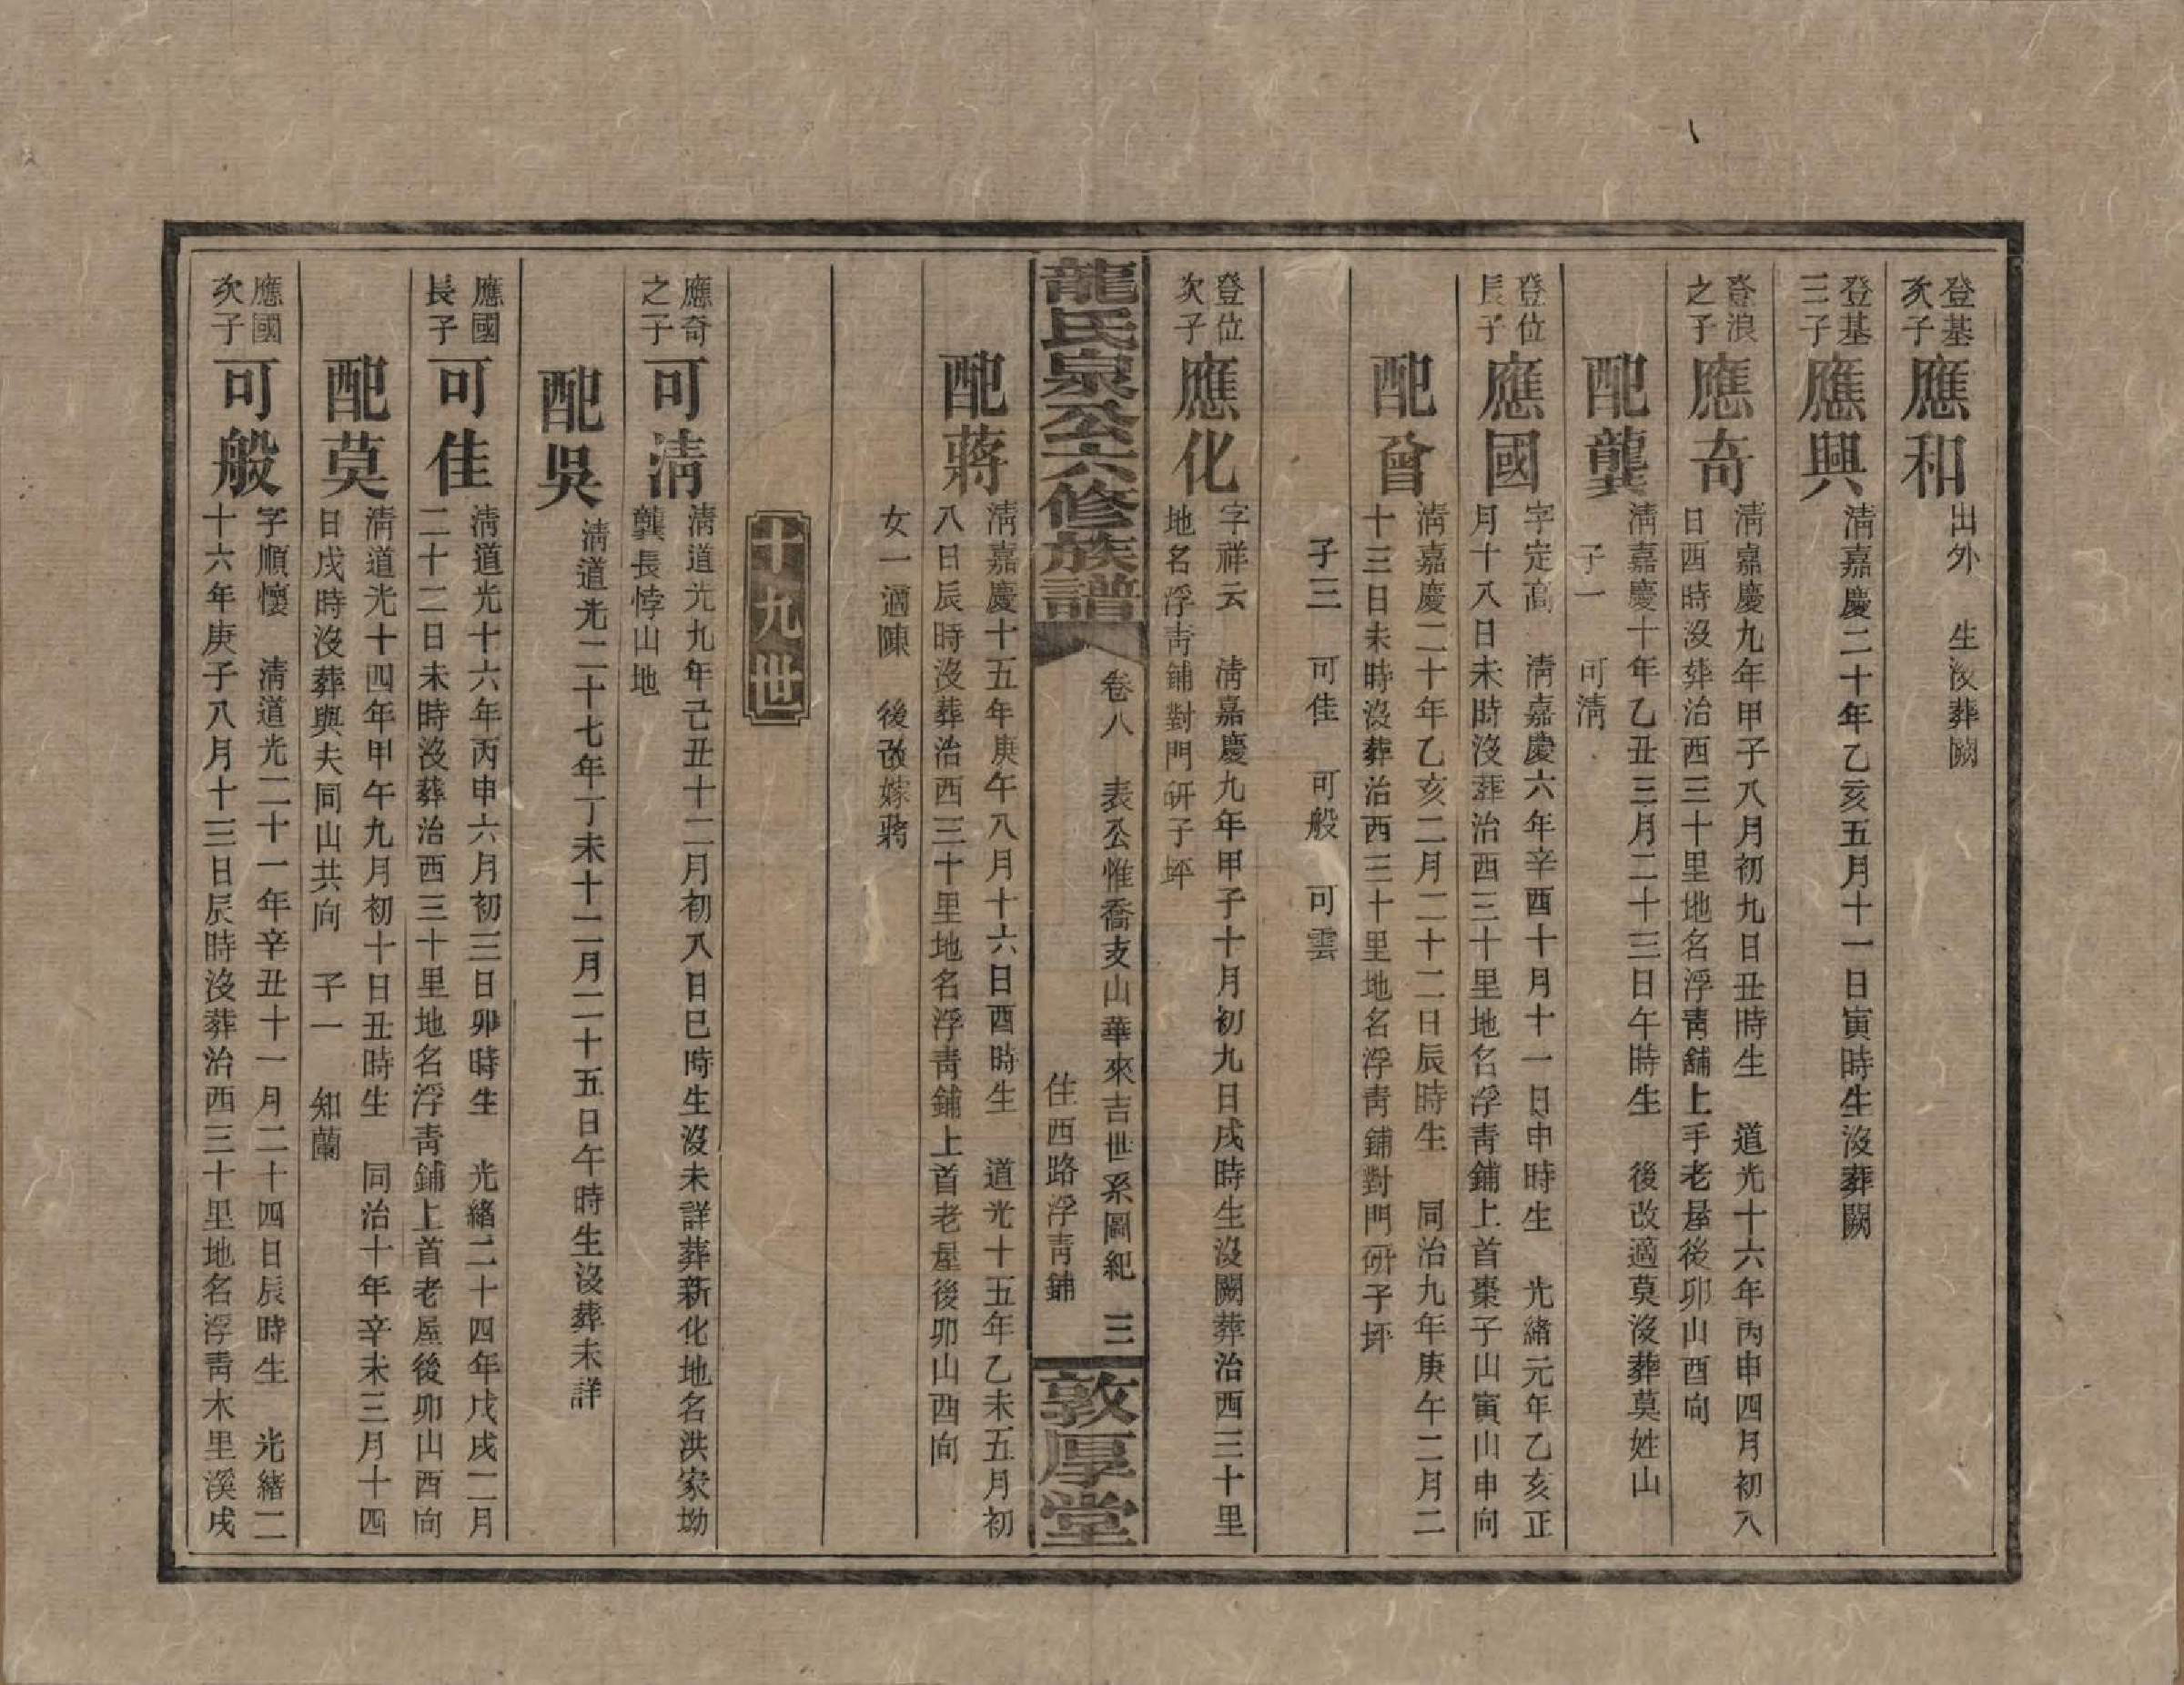 登基次子
應和
出外　生沒葬闕
登基三子
應興
清嘉慶二十年乙亥五月十一日寅時生沒葬闕
登浪之子
應奇
清嘉慶九年甲子八月初九日丑時生　道光十六年丙申四月初八
日酉時沒葬治西三十里地名浮青鋪上手老屋後卯山酉向
配龔
清嘉慶十年乙丑三月二十三日午時生　後改適莫沒葬莫姓山
子一　可清
登位長子
應國
字定高　清嘉慶六年辛酉十月十一日申時生　光緒元年乙亥正
月十八日未時沒葬治西三十里地名浮青鋪上首棗子山寅山申向
配曾
清嘉慶二十年乙亥二月二十二日辰時生　同治九年庚午二月二
十三日未時沒葬治西三十里地名浮青鋪對門研子坪
子三　可佳　可般　可雲
登位次子
應化
字祥云　清嘉慶九年甲子十月初九日戌時生沒闕葬治西三十里
地名浮青鋪對門研子坪
龍氏泉公六修族譜
卷八　表公惟喬支山華來吉世系圖紀　三
住西路浮青鋪
敦厚堂
配蔣
清嘉慶十五年庚午八月十六日酉時生　道光十五年乙未五月初
八日辰時沒葬治西三十里地名浮青鋪上首老屋後卯山酉向
女一適陳　後改嫁蔣
十九世
應奇之子
可清
清道光九年己丑十二月初八日巳時生沒未詳葬新化地名洪家坳
龔長悖山地
配吳
清道光二十七年丁未十二月二十五日午時生沒葬未詳
應國長子
可佳
清道光十六年丙申六月初三日卯時生　光緒二十四年戊戌二月
二十二日未時沒葬治西三十里地名浮青鋪上首老屋後卯山酉向
配莫
清道光十四年甲午九月初十日丑時生　同治十年辛未三月十四
日戌時沒葬與夫同山共向　子一　知蘭
應國次子
可般
字順懷　清道光二十一年辛丑十一月二十四日辰時生　光緒二
十六年庚子八月十三日辰時沒葬治西三十里地名浮青木里溪戌